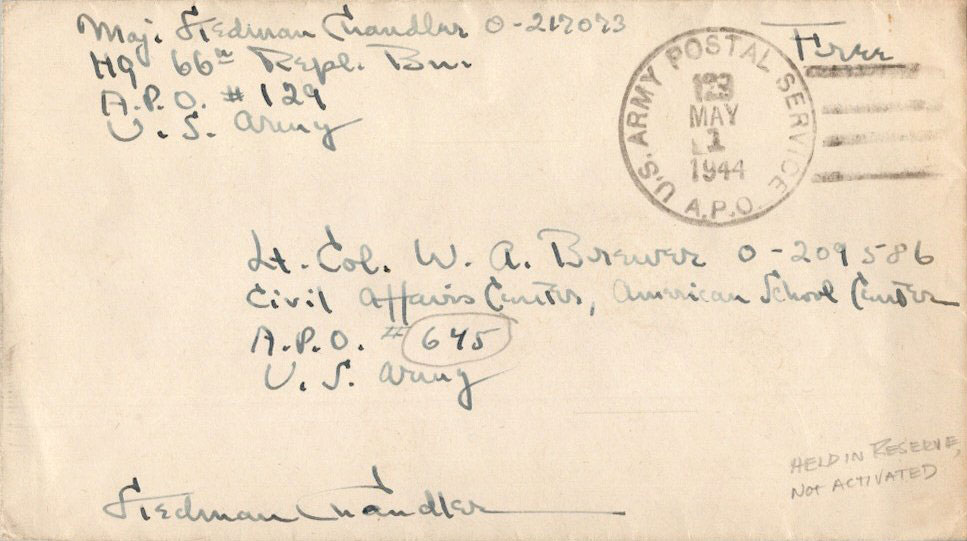 Maj. Stedman Chandler O-217073
Hq 66th Repl. Bn.
A.P.O. # 129
U. S. Army
Free
U.S. ARMY POSTAL SERVICE
123
MAY
1
1944
A.P.O.
Lt. Col. W. A. Brewer O-209586
Civil Affairs Center, American School Center
A.P.O. # 645
U. S. Army
HELD IN RESERVE,
NOT ACTIVATED
Stedman Chandler